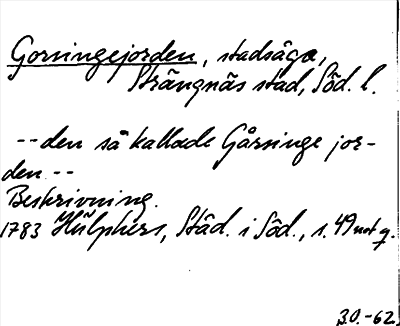 Gorsingejorden, stadsäga,
Strängnäs stad, Söd. l.
-- den så kallade Gårsinge jor-
den --
Beskrivning.
1783 Hülphers, Städ. i Söd., s. 49 not q.
3.0.-62.